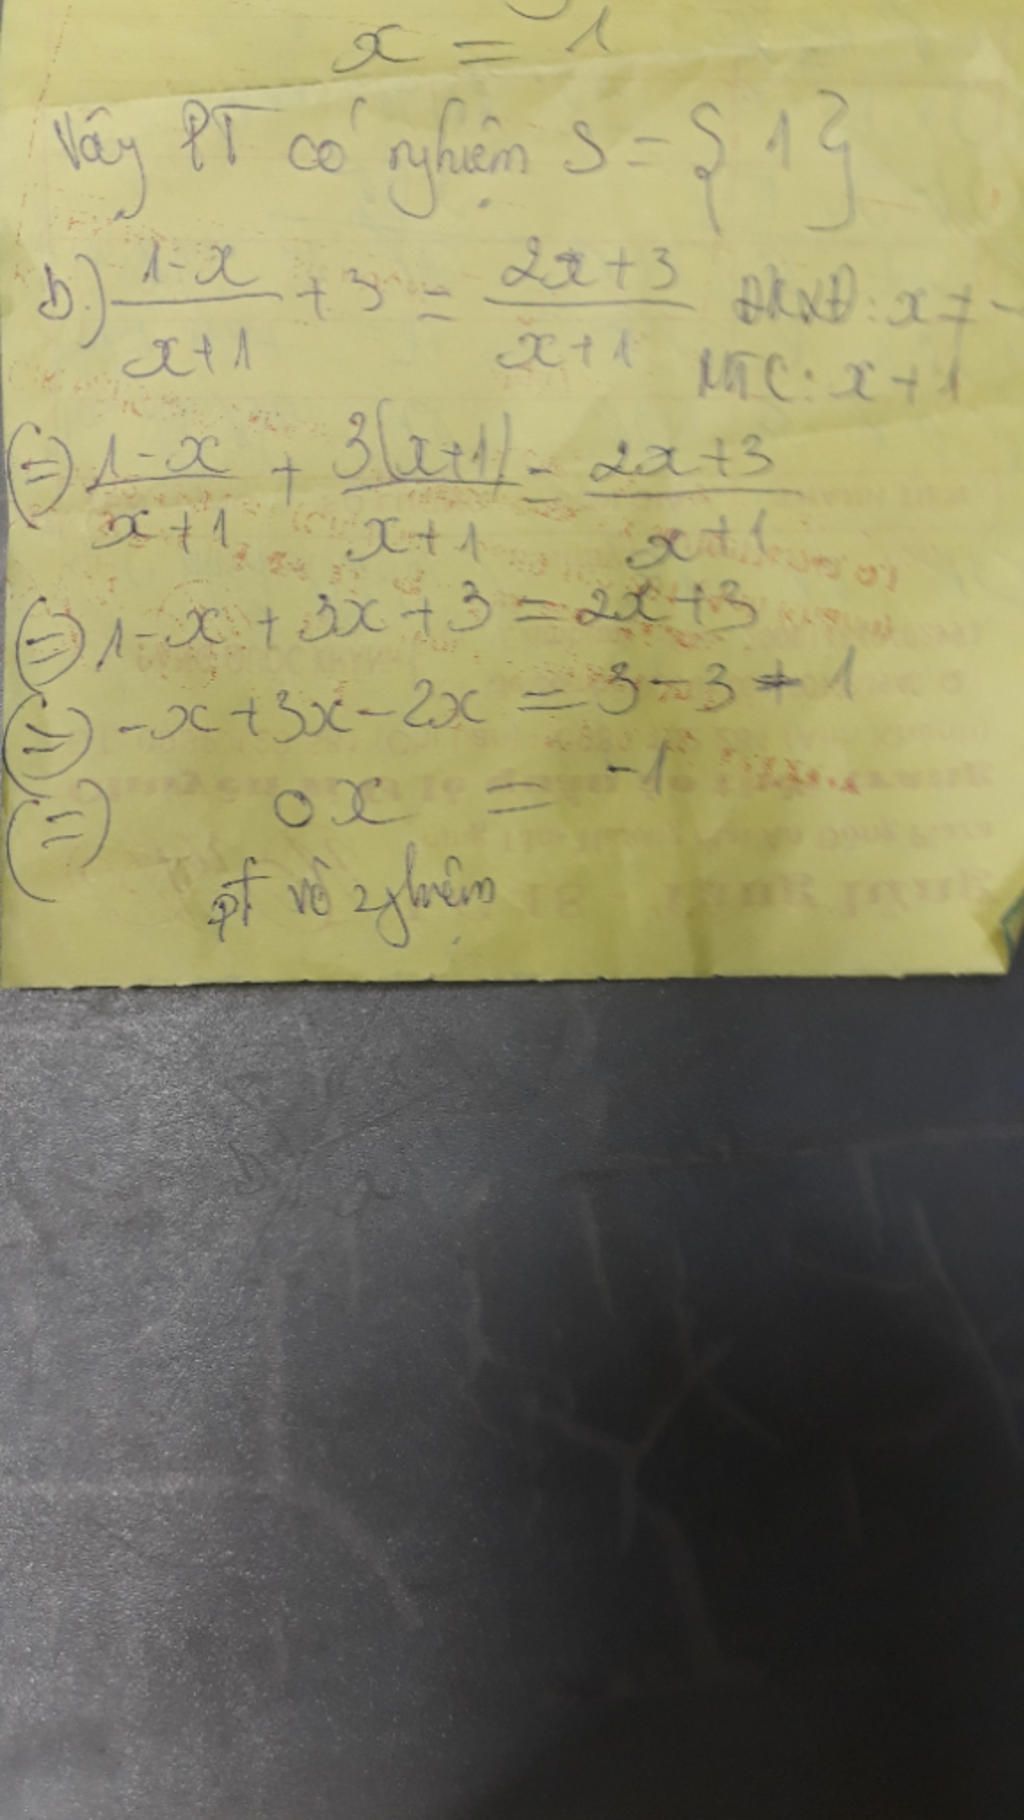 x = 1
Vây PT có nghiệm S = { 1 }
b.) \frac{1-x}{x+1} + 3 = \frac{2x+3}{x+1} ĐKXĐ: x ≠ -
MTC: x + 1
(=) \frac{1-x}{x+1} + \frac{3(x+1)}{x+1} = \frac{2x+3}{x+1}
(=) 1-x + 3x + 3 = 2x+3
(=) -x + 3x - 2x = 3 - 3 - 1
(=) 0x = -1
PT vô nghiệm